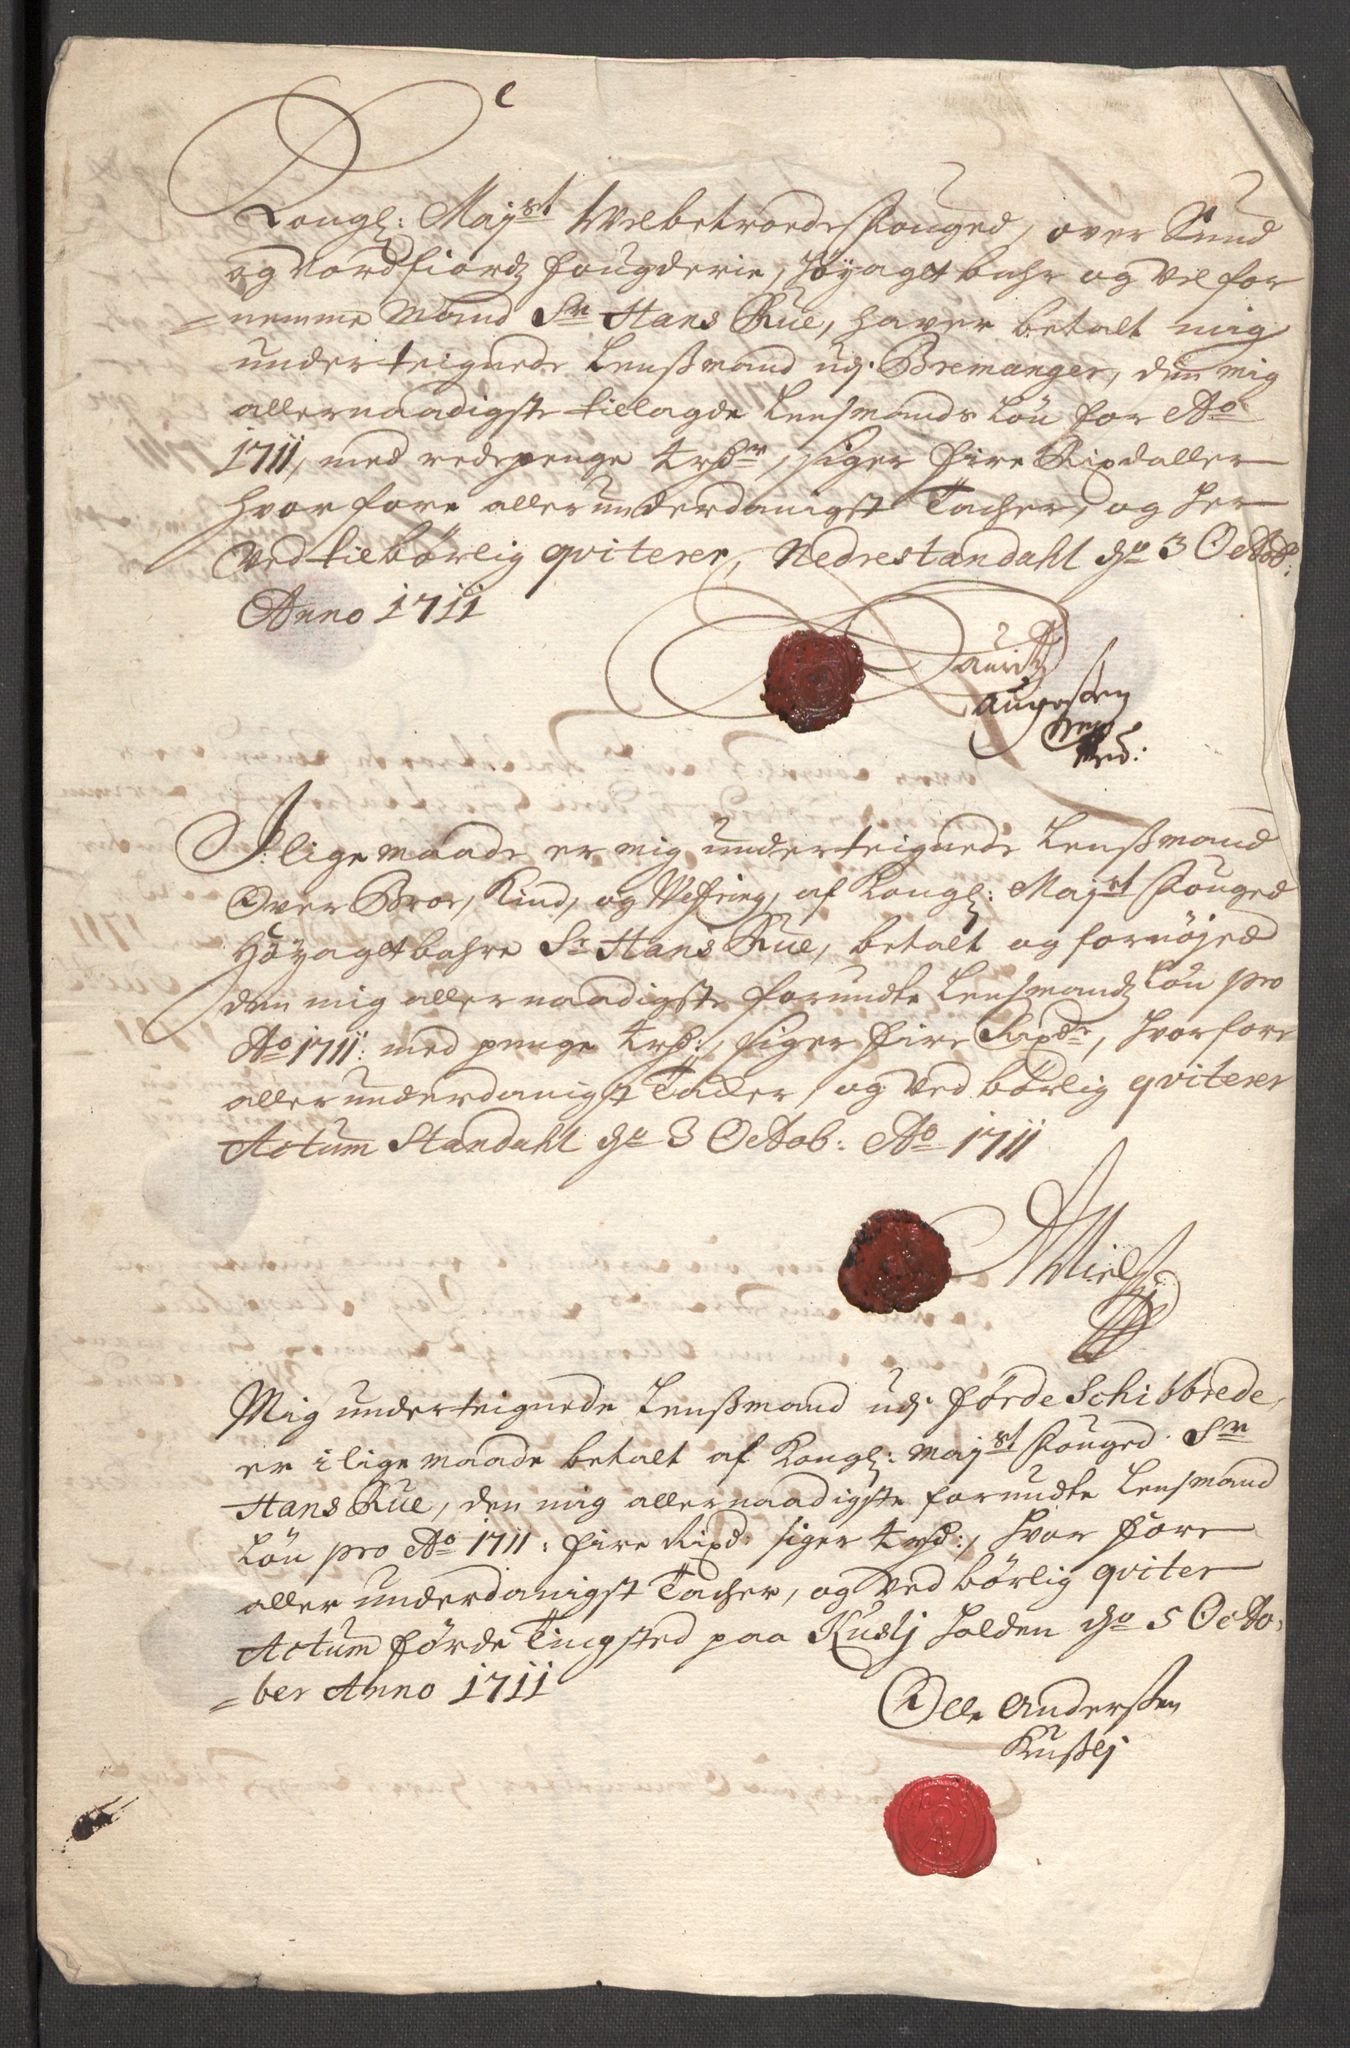 Kongl: Mayst Velbetroede Fouged, over Sund
og Nordfiordz fougderie, Høyagtbahr og Velfor
=nemme Mand Sr Hans Rue, haver betalt mig
underteignede Lenßmand udj Bremanger, den mig
allernaadigste tillagde Lensmands Løn for Ao
1711, med rede penge 4 rhdr, siger fire Rixdaller
hvorfore allerunderdanigst Tacher, og her
Ved tilbørlig qviterer, Nedrestandahl d 3 Octob:
Anno 1711
Lauritz
Ilige maade er mig underteignede Lenßmand
Over Broe, Kind, og Vefring, af Kongl: Mayst Fouged
Høyagtbahre Sr Hans Rue, betalt og fornøjed
den mig allernaadigste forundte Lensmandz Løn pro
Ao 1711: med penge 4 rhd:, siger fire Rixdr, hvorfore
allerunderdanigst Tacker, og Ved børlig qviterer
Actum Standahl d 3 Octob: Ao 1711
Mig underteignede Lenßmand udj førde Schibbrede,
er i lige maade betalt af Kongl: Mayst Fouged Sr
Hans Rue, den mig allernaadigste forundte Lensmand
Løn pro Ao 1711: fire Rixd: siger 4 rhd:, hvor fore
allerunderdanigst Tacher, og Ved børlig qviter
Actum førde Tingsted paa Kuslj holden d 5 Octo
=ber Anno 1711
Olle Anderßen
Kußlj